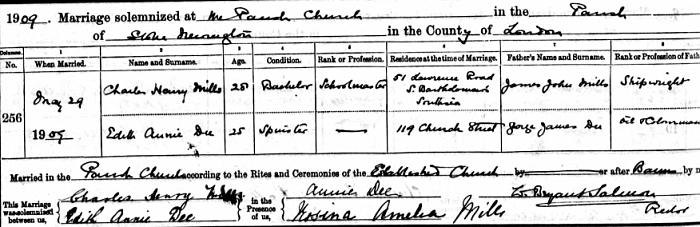 1909. Marriage solemnized at the Parish Church in the Parish
of Stoke Newington in the County of London
Columns. 1 2 3 4 5 6 7 8
No. When Married. Name and Surname. Age. Condition. Rank or Profession. Residence at the time of Marriage. Father's Name and Surname. Rank or Profession of Fath
256 May 29 Charles Henry Mills 25 Bachelor Schoolmaster 51 Lawrence Road St. Bartholomew's Southsea James John Mills Shipwright
1909 Edith Annie Dee 25 Spinster — 119 Church Street George James Dee Oil & Colourman
Married in the Parish Church according to the Rites and Ceremonies of the Established Church by — or after Banns by m
This Marriage was solemnized between us, Charles Henry Mills Edith Annie Dee in the Presence of us, Annie Dee Rosina Amelia Mills Bryant Salmon
Rector